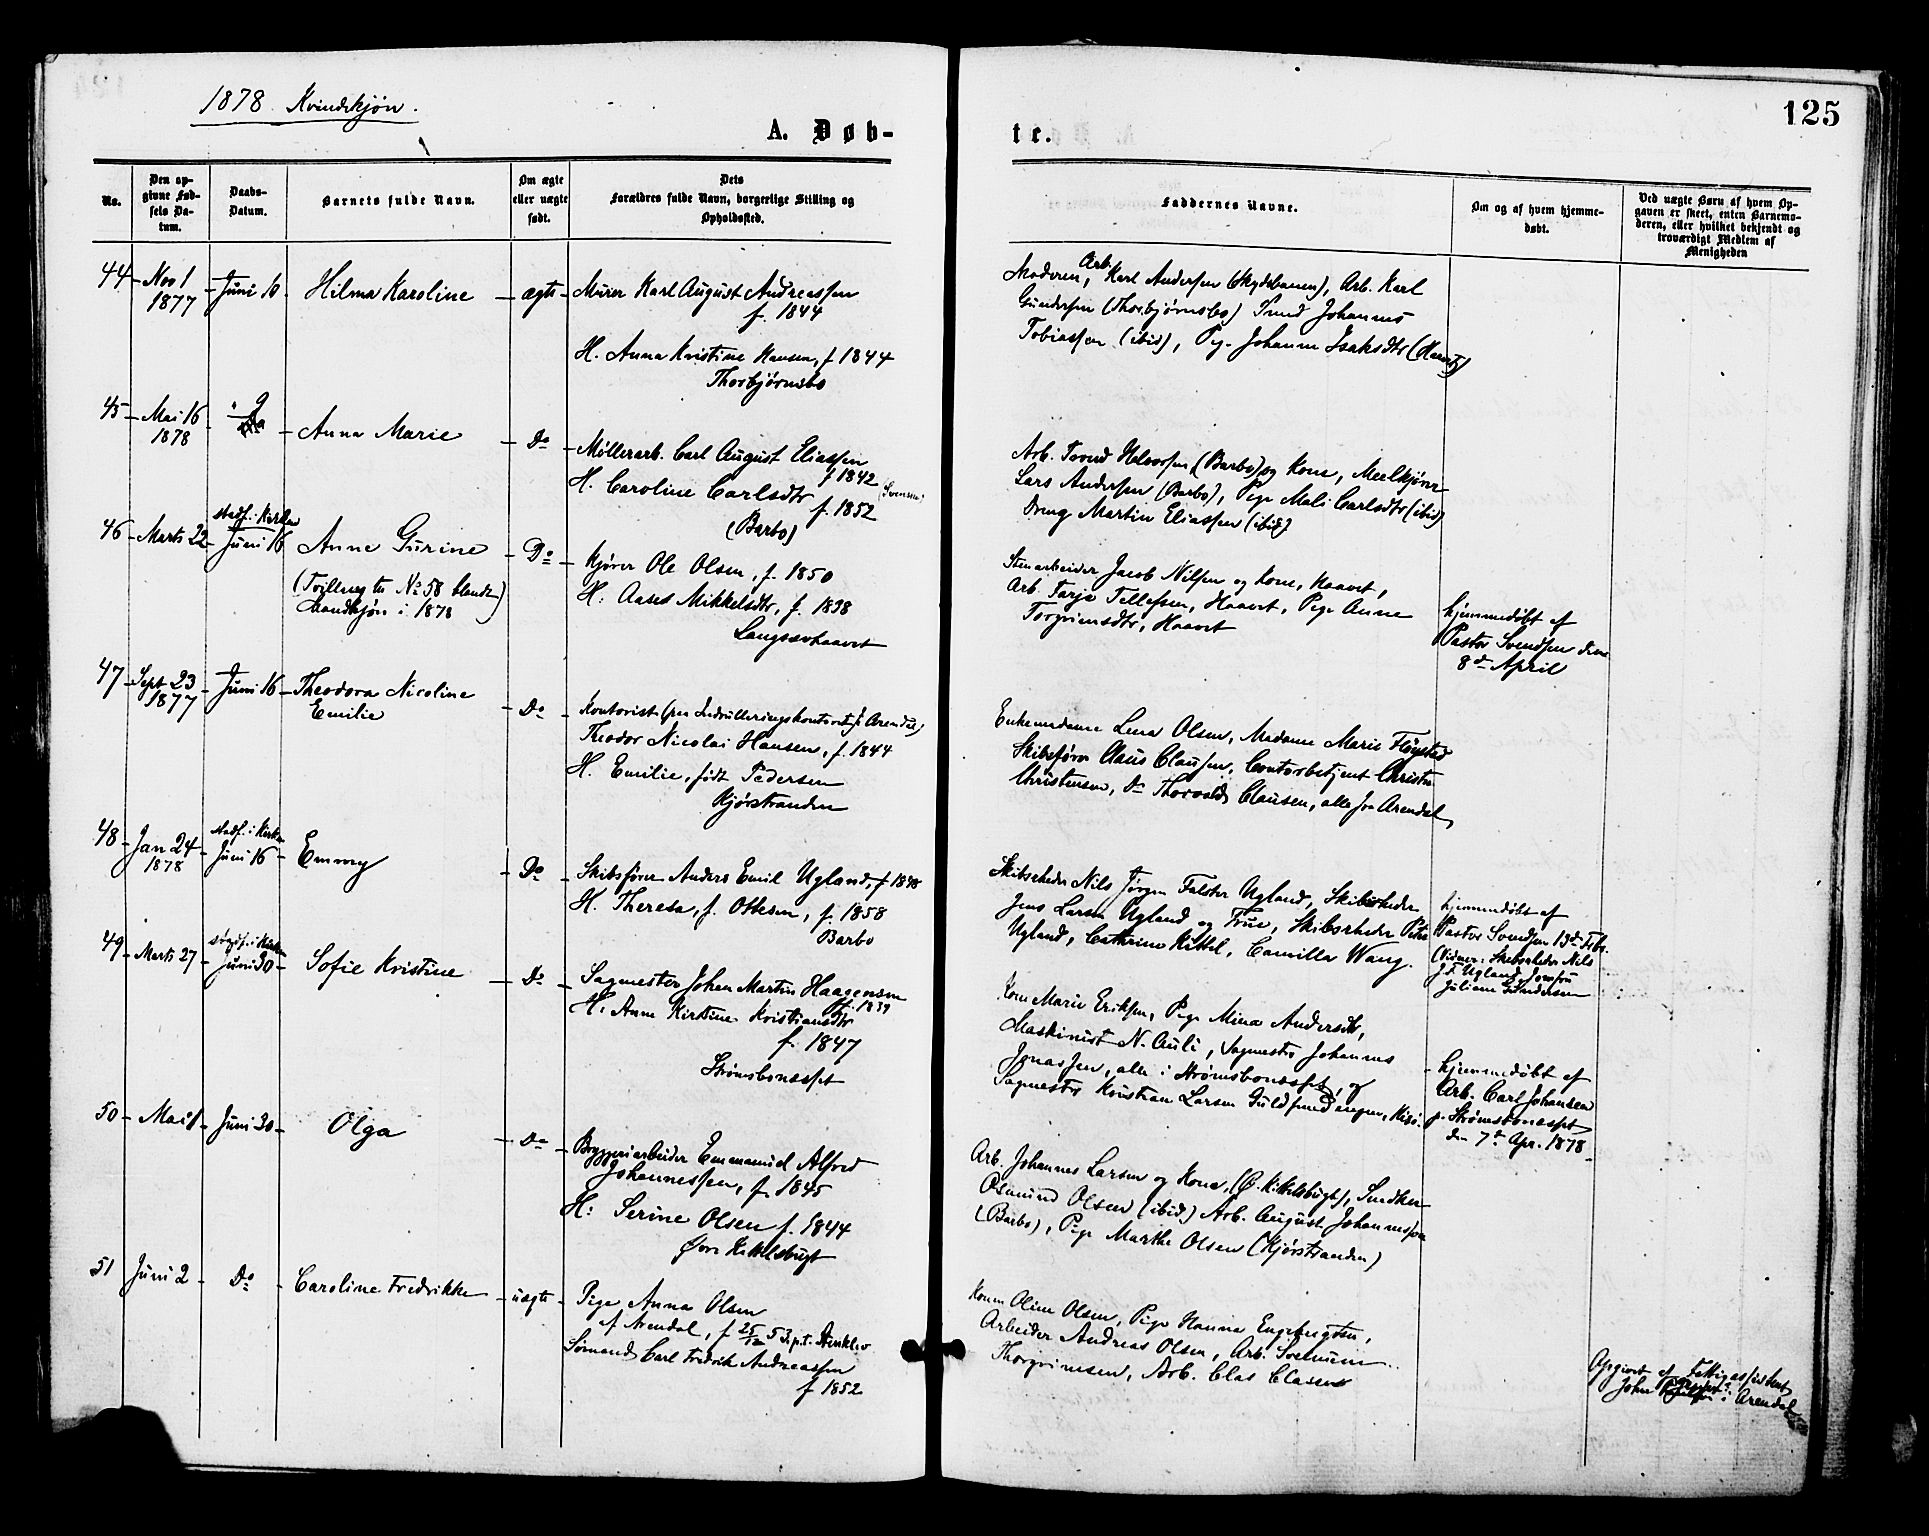 1878. Kvindekjøn.
A. Døb-
No.
Den op-
givne Fød-
sels Da-
tum.
Daabs-
Datum.
Barnets fulde Navn.
Om ægte
eller uægte
født.
Dets
Forældres fulde Navn, borgerlige Stilling og
Opholdssted.
44 Nov 1 1877 Juni 10 Hilma Karoline ægte Murer Karl August Andreassen
f. 1844
H. Anna Kristine Hansen, f 1844
Thorbjørnsbo
45 Mai 16 1878 " 9 Anna Marie Do Møllerarb. Carl August Eliassen
f 1842
H. Caroline Carlsdtr f. 1852
(Barbo)
46 Marts 22 stadf. i Kirken Juni 16 Anne Gurine Do Kjører Ole Olsen, f. 1850
(Tvilling til No 58 blandt
Mandkjøn i 1878)
H: Aases Mikkelsdtr, f. 1838
Langsævhaavet
47 Sept 23 1877 Juni 16 Theodora Nicoline
Emilie
Do Kontorist (paa Indrulleringskontoret i Arendal)
Theodor Nicolai Hansen, f. 1844
H. Emilie, født Pedersen
Kjørstranden
48 Jan 24 1878 stadf. i Kirken Juni 16 Emmy Do Skibsfører Anders Emil Ugland, f 1848
H. Theresa, f. Ottesen, f. 1858
Barbo
49 Marts 27 i Kirken Juni 30 Sofie Kristine Do Sagmester Johan Martin Haagensen
f. 1839
H: Anne Kirstine Kristiansdtr
f. 1847
Strømsbonæsset
50 Mai 1 Juni 30 Olga Do Bryggeriarbeider Emmanuel Alfred
Johannessen, f. 1845
H: Serine Olsen f. 1844
Øvre Kittelsbugt
51 Juni 2 Do Caroline Fredrikke uægte Pige Anna Olsen
af Arendal, f 25/12 53, p.t. Stinklev
Sømand Carl Fredrik Andreassen
f 1852
125
te.
Faddernes Navne.
Om og af hvem hjemme-
døbt.
Ved uægte Børn af hvem Op-
gaven er skeet, enten Barnemo-
deren, eller hvilket bekjendt og
troværdigt Medlem af
Menigheden
Moderen, Arb. Karl Andersen (Skydebanen), Arb. Karl
Gundersen (Thorbjørnsbo) Smed Johannes
Tobiassen (ibid), Pige Johanne Isaksdtr (Haavet)
Arb. Tovend Halvorsen (Barbo) og Kone, Meelkjører
Lars Andersen (Barbo), Pige Mali Carlsdtr (ibid)
Dreng Martin Eliassen (ibid)
Stenarbeider Jacob Nilsen og Kone, Haavet,
Arb. Tarje Tellefsen, Haavet, Pige Anne
Torgrimsdtr, Haavet
hjemmedøbt af
Pastor Svendsen den
8de April
Enkemadame Lena Olsen, Madame Marie Fløystad
Skibsfører Claus Clausen, Contorbetjent Christen
Christensen, Do Thorvald Clausen, alle fra Arendal
Skibsrheder Nils Jørgen Falster Ugland, Skibsrheder
Jens Larsen Ugland og Frue, Skibsrheder Peter
Ugland, Cathrine Kittel, Camilla Wang.
hjemmedøbt af
Pastor Svendsen 19de Febr.
(Vidner: Skibsrheder Nils
J. F. Ugland, Jomfru
Juliane Gundersen
Kone Marie Eriksen, Pige Mina Andersdtr,
Maskinist N. Auli, Sagmester Johannes
Jonassen, alle i Strømsbonæsset, og
Sagmester Kristian Larsen Guldsmedengen,
hjemmedøbt af
Arb. Carl Johansen
p. Strømsbonæsset
den 7de Apr. 1878
Arb. Johannes Larsen og Kone, (Ø. Kittelsbugt), Snedker
Osmund Olsen (ibid) Arb. August Johannessen
(Barbo), Pige Marthe Olsen (Kjørstranden)
Konen Oline Olsen, Pige Hanna Engebregtsen,
Arbeider Andreas Olsen, Arb.
Thorgrimsen, Arb. Clas Classen
Opgivet af Fattigassistent
John i Arendal